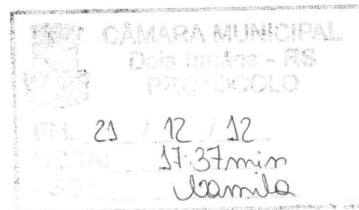 CÂMARA MUNICIPAL
Dois Irmãos - RS
PROTOCOLO
EM: 21 / 12 / 12
HORA: 17:37min
Camila